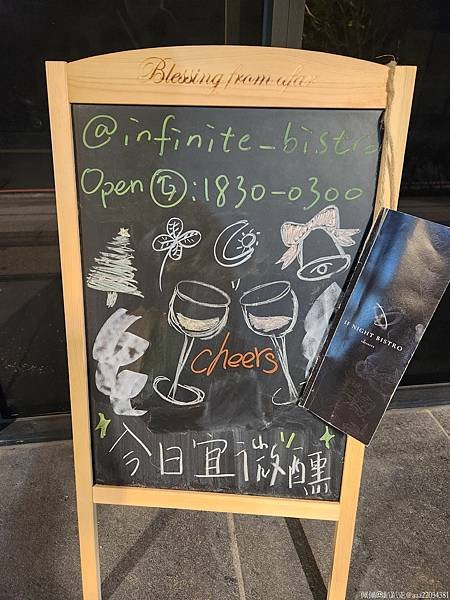 Blessing from afar
@infinite_bistro
Open :1830-0300
cheers
今日宜微醺
NIGHT BISTRO